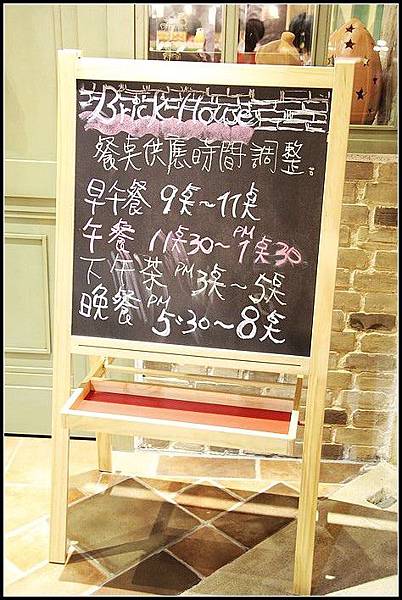 Brick House
餐桌供應時間調整。
早午餐 9桌~11桌
午餐 11桌30~PM 1桌30
下午茶 PM 3桌~5桌
晚餐 PM 5:30~8桌